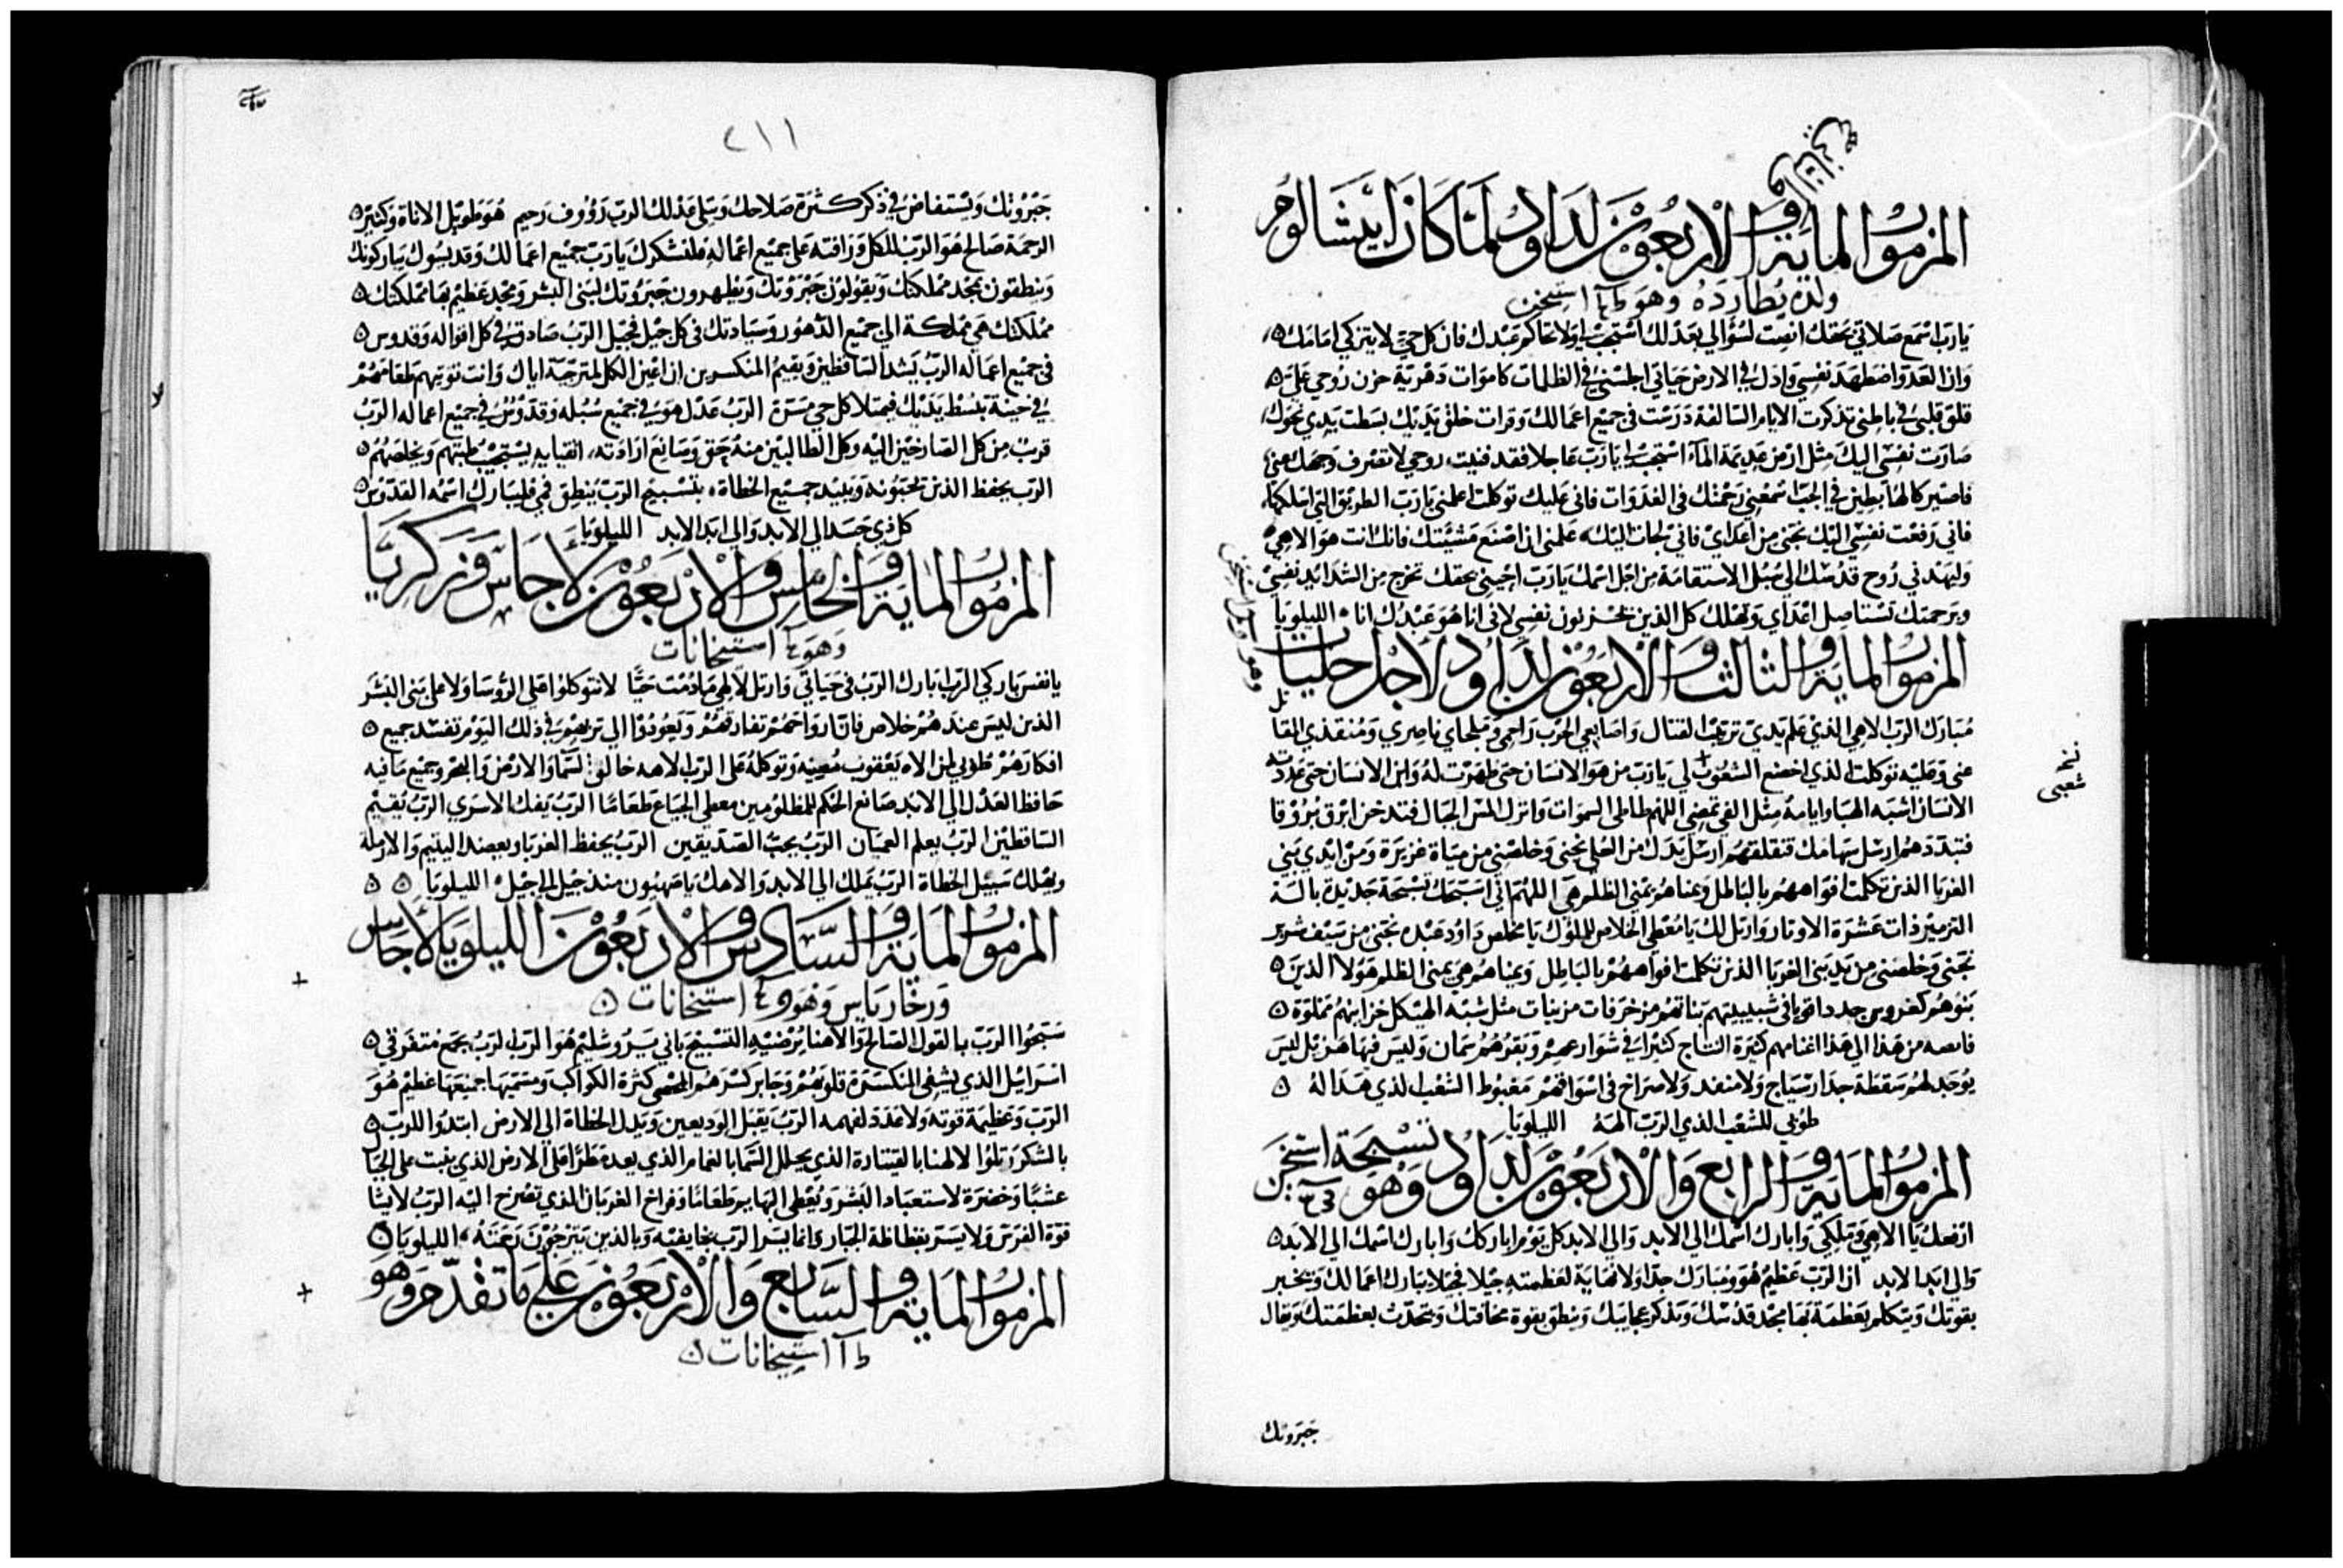 المزمور الماية والاربعون لداود لما كان ابيشالوم
ولده يطارده وهو استيخن
يارب اسمع صلاتي بحقك انصت لسؤالي بعدلك استجب لي ولا تحاكم عبدك فان كل حي لا يتزكي امامك
واذا العدو اضطهد نفسي واذل في الارض حياتي اجلسني في الظلمات كاموات دهرية حزن روحي علي
قلق قلبي في باطني تذكرت الايام السالفة درست في جميع اعمالك وفرات خلق يديك بسطت يدي نحوك
صارت نفسي اليك مثل ارض عديمة الماء استجب لي يارب عاجلا فقد فنيت روحي لا تصرف وجهك عني
فاصير كالهابطين في الجب اسمعني رحمتك في الغدوات فاني عليك توكلت اعلمني يارب الطريق التي اسلكها
فاني رفعت نفسي اليك نجني من اعداي فاني لجات اليك علمني ان اصنع مشيتك فانك انت هو الاهي
وليهدني روح قدسك الي سبل الاستقامة من اجل اسمك يارب احييني بحقك تخرج من الشدايد نفسي
وبرحمتك تستاصل اعداي وتهلك كل الذين يحزنون نفسي لاني انا هو عبدك انا الليلويا
المزمور الماية والثالث والاربعون لداود لاجل جليات
مبارك الرب الاهي الذي علم يدي ترتيب القتال واصابعي الحرب راحمي وملجاي ناصري ومنقذي المقا
عني وعليه توكلت الذي اخضع الشعوب لي يارب من هو الانسان حتى ظهرت له وابن الانسان حتى عددته
الانسان اشبه الهبا وايامه مثل الفي تمضي اللهم طاطي السموات وانزل المس الجبال فتدخن ابرق بروقا
فتبددهم ارسل سهامك فتقلقهم ارسل يدك من العلي نجني وخلصني من مياة غزيرة ومن ايدي بني
الغربا الذين تكلمت افواههم بالباطل ويمناهم يمني الظلم هي اللهم اني اسبحك تسبحة جديدة بالسة
التزمير ذات عشرة الاوتار وارتل لك يا معطي الخلاص للملوك يا مخلص داود عبده نجني من سيف شرير
نجني وخلصني من يد بني الغربا الذين تكلمت افواههم بالباطل ويمناهم هي يمني الظلم هولا الذين
بنوهم كغروس جدد اقويا في شبيبتهم بناتهم مزخرفات مزينات مثل شبه الهيكل خزاينهم مملوة
فايضه من هذا الي هذا اغنامهم كثيرة النتاج كثيرا في شوارعهم وبقرهم سمان وليس فيها هزيل ليس
يوجد لهم سقطة جدار سياج ولا منفد ولا صراخ في اسواقهم مغبوط الشعب الذي هذا له
طوبي للشعب الذي الرب الهه الليلويا
المزمور الماية والرابع والاربعون لداود تسبحة
وهو استيخن
ارفعك يا الاهي وملكي وابارك اسمك الي الابد والي الابد كل يوم اباركك وابارك اسمك الي الابد
والي ابد الابد ان الرب عظيم هو ومبارك جدا ولا نهاية لعظمته جيلا فجيلا يبارك اعمالك وتخبر
بقوتك ويتكلم بعظمة بها مجد قدسك ويذكر عجايبك وينطق بقوة مخافتك ويتحدث بعظمتك ويقال
جبروتك
نخـ
شعبي
٢١١
جبروتك ويستفاض في ذكر كثرة صلاحك وبتلي عدلك الرب رووف رحيم هو طويل الاناة وكثير
الرحمة صالح هو الرب للكل ورافته على جميع اعماله فلتشكرك يارب جميع اعمالك وقديسوك يباركونك
وينطقون بمجد مملكتك ويقولون جبروتك ويظهرون جبروتك لبني البشر ومجد عظيم بها مملكتك
مملكتك هي مملكة الي جميع الدهور وسيادتك في كل جيل فجيل الرب صادق في كل اقواله وقدوس
في جميع اعماله الرب يشد الساقطين ويقيم المنكسرين ان اعين الكل مترجية اياك وانت توتيهم طعامهم
في حينه تبسط يديك فيمتلا كل حي مسرة الرب عدل هو في جميع سبله وقدوس في جميع اعماله الرب
قريب من كل الصارخين اليه وكل الطالبين منه بحق وصانع ارادته اتقيايه يستجيب طلبتهم ويخلصهم
الرب يحفظ الذين يحبونه ويبيد جميع الخطاة بتسبيح الرب ينطق فمي فليبارك اسمه القدوس
كل ذي جسد الي الابد والي ابد الابد الليلويا
المزمور الماية والخامس والاربعون لاجاس وزكريا
وهو استيخانات
يا نفس باركي الرب ابارك الرب في حياتي وارتل لالهي ما دمت حيا لا تتوكلوا على الروسا ولا على بني البشر
الذين ليس عندهم خلاص فان ارواحهم تفارقهم ويعودوا الي تربهم في ذلك اليوم تفسد جميع
افكارهم طوبي لمن الاه يعقوب معينه وتوكله على الرب الاهه خالق السما والارض والبحر وجميع ما فيه
حافظ العدل الي الابد صانع الحكم للمظلومين معطي الجياع طعاما الرب يفك الاسري الرب يقيم
الساقطين الرب يعلم العميان الرب يحب الصديقين الرب يحفظ الغربا ويعضد اليتيم والارملة
ويهلك سبيل الخطاة الرب يملك الي الابد والاهك يا صهيون منذ جيل الي جيل الليلويا
المزمور الماية والسادس والاربعون الليلويا لاجاس
وزخارياس وهو استيخانات
سبحوا الرب بالقول الصالح والاهنا يرضيه التسبيح باني يروشليم هو الرب الرب يجمع متفرقي
اسراييل الذي يشفي المنكسرة قلوبهم وجابر كسرهم المحصي كثرة الكواكب ومسميها جميعها عظيم هو
الرب وعظيمة قوته ولا عدد لفهمه الرب يقبل الوديعين ويذل الخطاة الي الارض ابتدوا للرب
بالشكر رتلوا لالهنا بالقيثارة الذي يجلل السما بالغمام الذي يعد مطرا على الارض الذي ينبت على الجبال
عشبا وخضرة لاستعباد البشر ويعطي البهايم طعاما وفراخ الغربان الذي تصرخ اليه الرب لا يشا
قوة الفرس ولا يسر بفظاظة الجباري انما يسر الرب بخايفيه وبالذين يترجون رحمته الليلويا
المزمور الماية والسابع والاربعون علي ما تقدم وهو
استيخانات